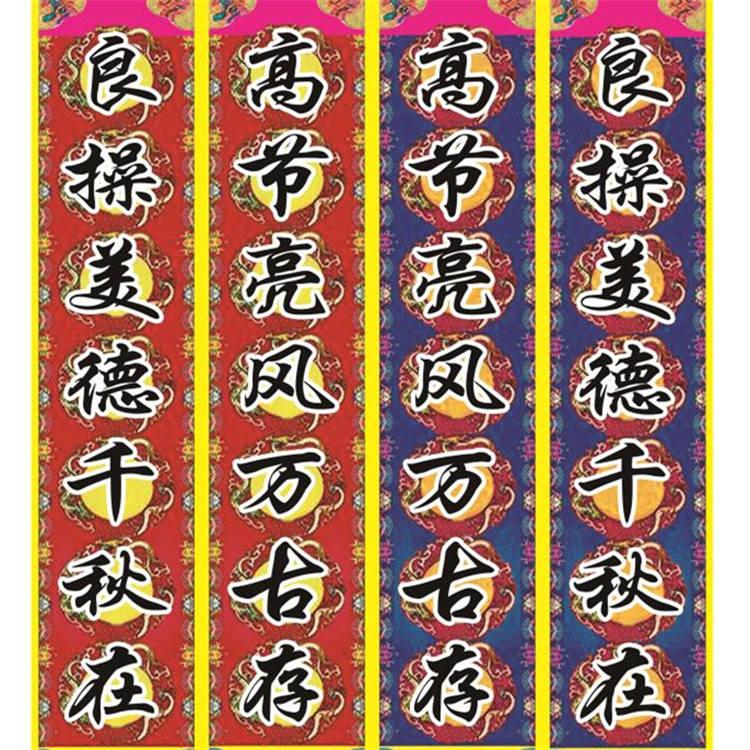 良操美德千秋在
高节亮风万古存
高节亮风万古存
良操美德千秋在